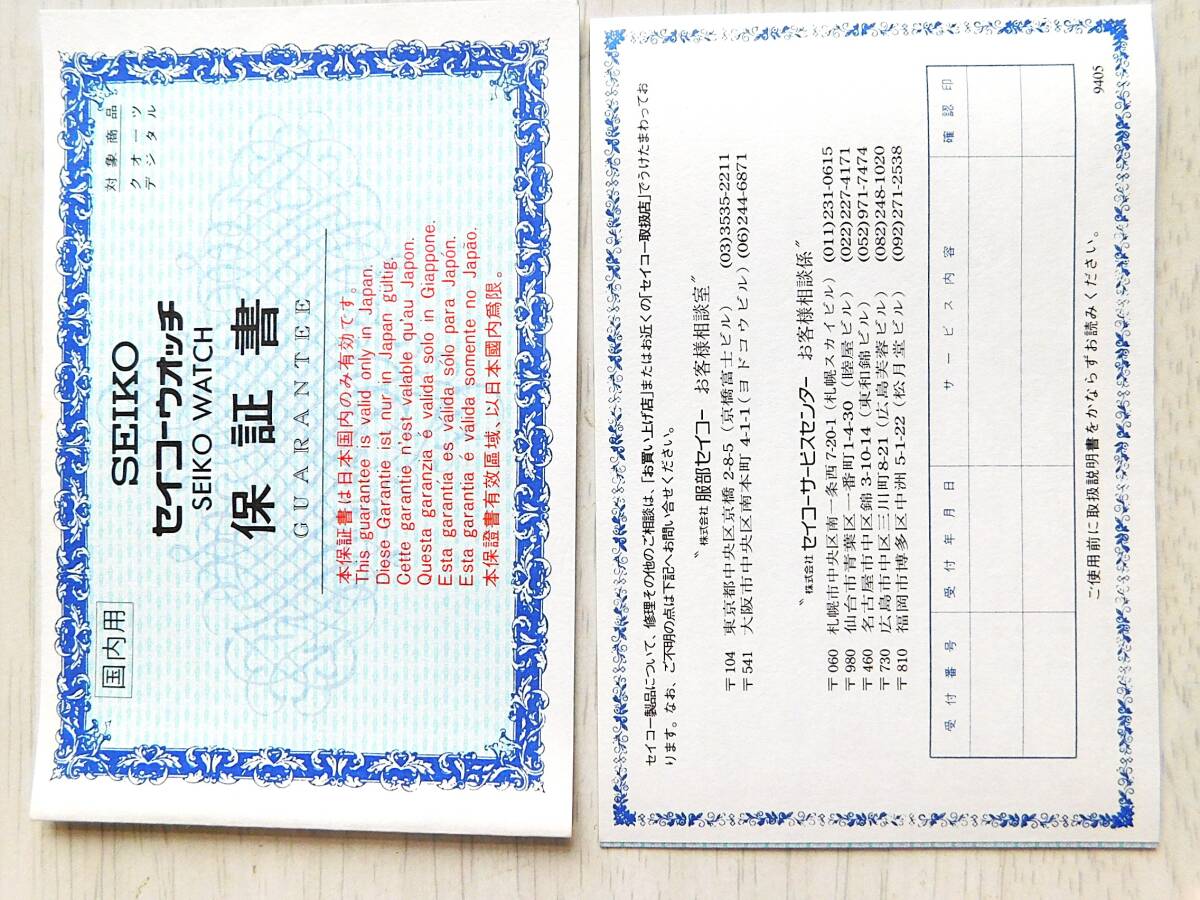 国内用
対象商品
クオーツ
デジタル
SEIKO
セイコーウオッチ
SEIKO WATCH
保証書
GUARANTEE
本保証書は日本国内のみ有効です。
This guarantee is valid only in Japan.
Diese Garantie ist nur in Japan gültig.
Cette garantie n'est valable qu'au Japon.
Questa garanzia é valida solo in Giappone.
Esta garantia es válida sólo para Japón.
Esta garantia é válida somente no Japão.
本保證書有效區域、以日本國内爲限。
セイコー製品について、修理その他のご相談は、「お買い上げ店」またはお近くの「セイコー取扱店」でうけたまわってお
ります。なお、ご不明の点は下記へお問い合せください。
〝株式会社 服部セイコー お客様相談室〞
〒104 東京都中央区京橋 2-8-5 (京橋富士ビル) (03)3535-2211
〒541 大阪市中央区南本町 4-1-1 (ヨドコウビル) (06)244-6871
〝株式会社 セイコーサービスセンター お客様相談係〞
〒060 札幌市中央区南一条西7-20-1 (札幌スカイビル) (011)231-0615
〒980 仙台市青葉区一番町1-4-30 (睦屋ビル) (022)227-4171
〒460 名古屋市中区錦 3-10-14 (東和錦ビル) (052)971-7474
〒730 広島市中区三川町8-21 (広島芙蓉ビル) (082)248-1020
〒810 福岡市博多区中洲 5-1-22 (松月堂ビル) (092)271-2538
受付番号 受付年月日 サービス内容 確認印
ご使用前に取扱説明書をかならずお読みください。
9405